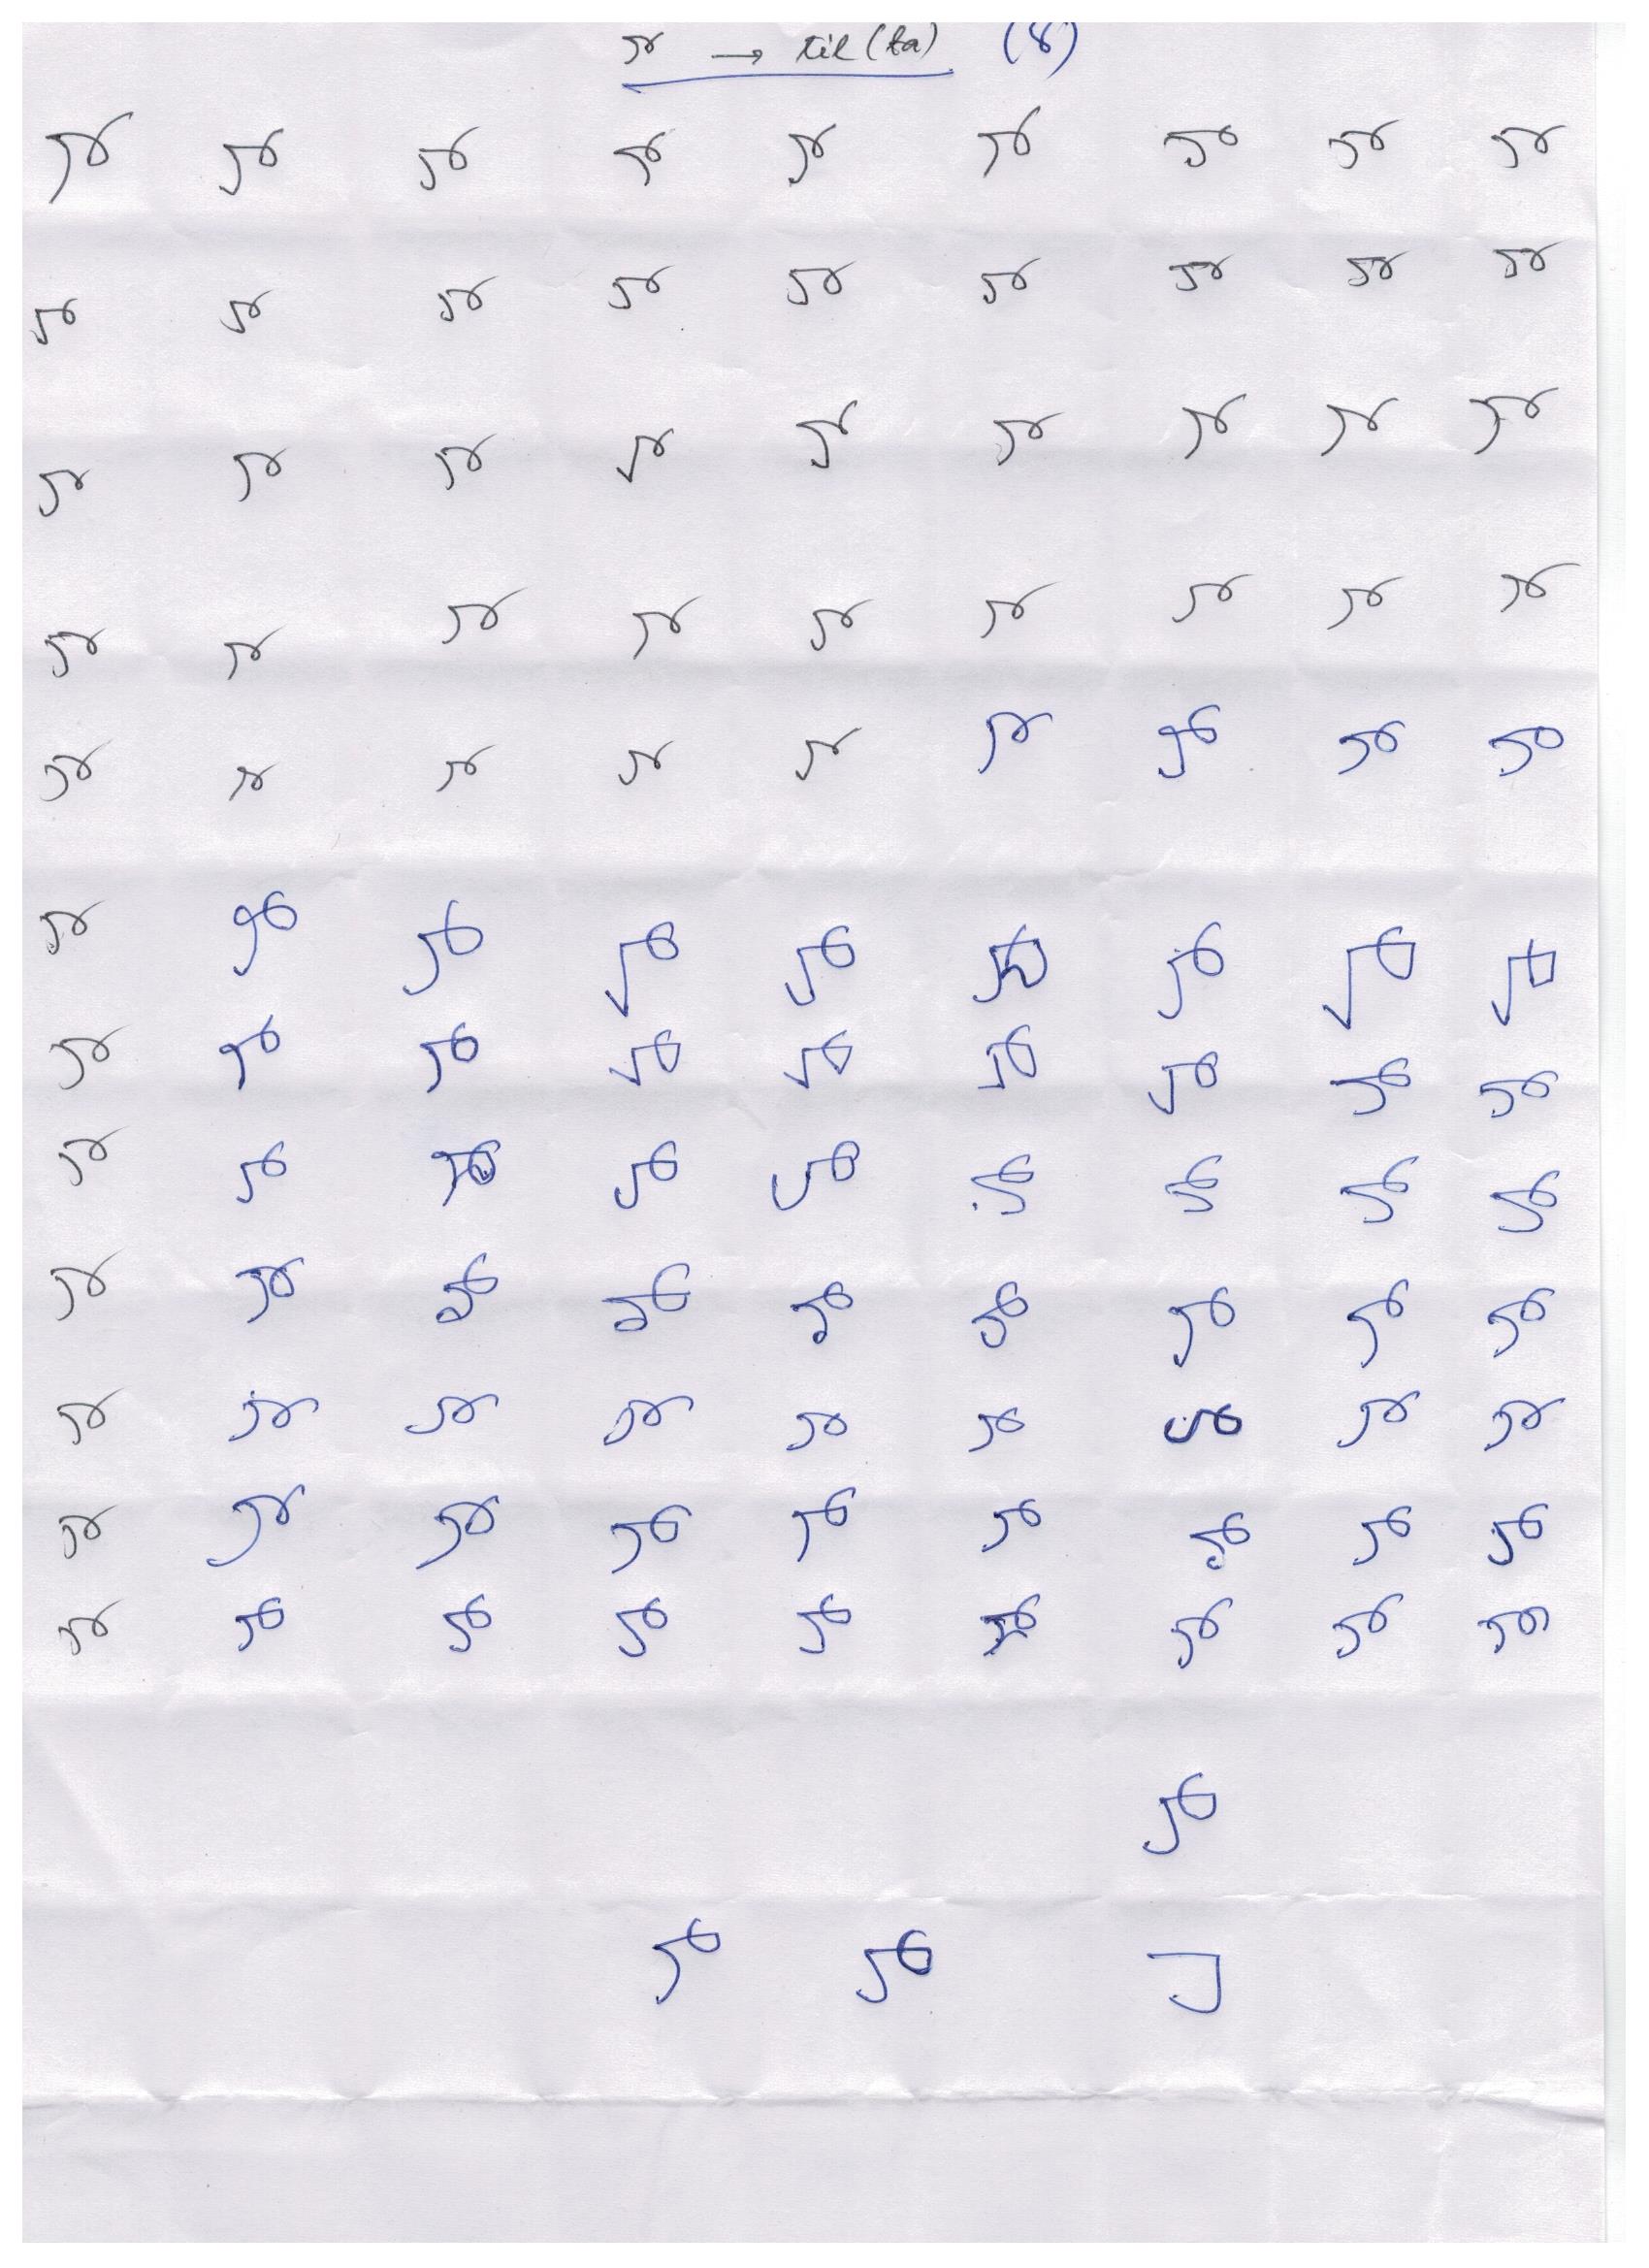 ꯇ → til (ta) (8)
ꯇ ꯇ ꯇ ꯇ ꯇ ꯇ ꯇ ꯇ ꯇ
ꯇ ꯇ ꯇ ꯇ ꯇ ꯇ ꯇ ꯇ ꯇ
ꯇ ꯇ ꯇ ꯇ ꯇ ꯇ ꯇ ꯇ ꯇ
ꯇ ꯇ ꯇ ꯇ ꯇ ꯇ ꯇ ꯇ ꯇ
ꯇ ꯇ ꯇ ꯇ ꯇ ꯇ ꯇ ꯇ ꯇ
ꯇ ꯇ ꯇ ꯇ ꯇ ꯇ ꯇ ꯇ ꯇ
ꯇ ꯇ ꯇ ꯇ ꯇ ꯇ ꯇ ꯇ ꯇ
ꯇ ꯇ ꯇ ꯇ ꯇ ꯇ ꯇ ꯇ ꯇ
ꯇ ꯇ ꯇ ꯇ ꯇ ꯇ ꯇ ꯇ ꯇ
ꯇ ꯇ ꯇ ꯇ ꯇ ꯇ ꯇ ꯇ ꯇ
ꯇ ꯇ ꯇ ꯇ ꯇ ꯇ ꯇ ꯇ ꯇ
ꯇ ꯇ ꯇ ꯇ ꯇ ꯇ ꯇ ꯇ ꯇ
ꯇ
ꯇ ꯇ